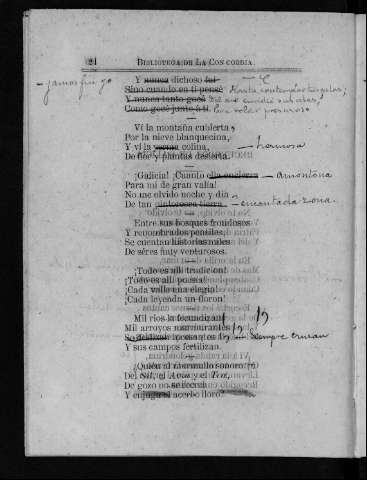 24 BIBLIOTECA DE LA CONCORDIA.
Y nunca dichoso fuí
Sino cuando en ti pensé
Y nunca tanto gocé
Como gocé junto á ti.
Ví la montaña cubierta
Por la nieve blanquecina,
Y ví la yerma colina, hermosa
De flor y plantas desierta.
¡Galicia! ¡Cuanto ella encierra amontona
Para mi de gran valia!
No me olvido noche y dia
De tan pintoresca tierra. encantada zona.
Entre sus bosques frondosos
Y renombrados pensiles,
Se cuentan historias miles
De séres muy venturosos.
¡Todo es allí tradicion!
¡Todo es allí poesía!
¡Cada valle una elegía!
¡Cada leyenda un floron!
Mil rios la fecundizan
Mil arroyos murmurantes
siempre cruzan
Y sus campos fertilizan.
¿Quién al murmullo sonoro
Del Sil, el Avia y el Tea,
De gozo no se recrea
Y enjuga el acerbo lloro?